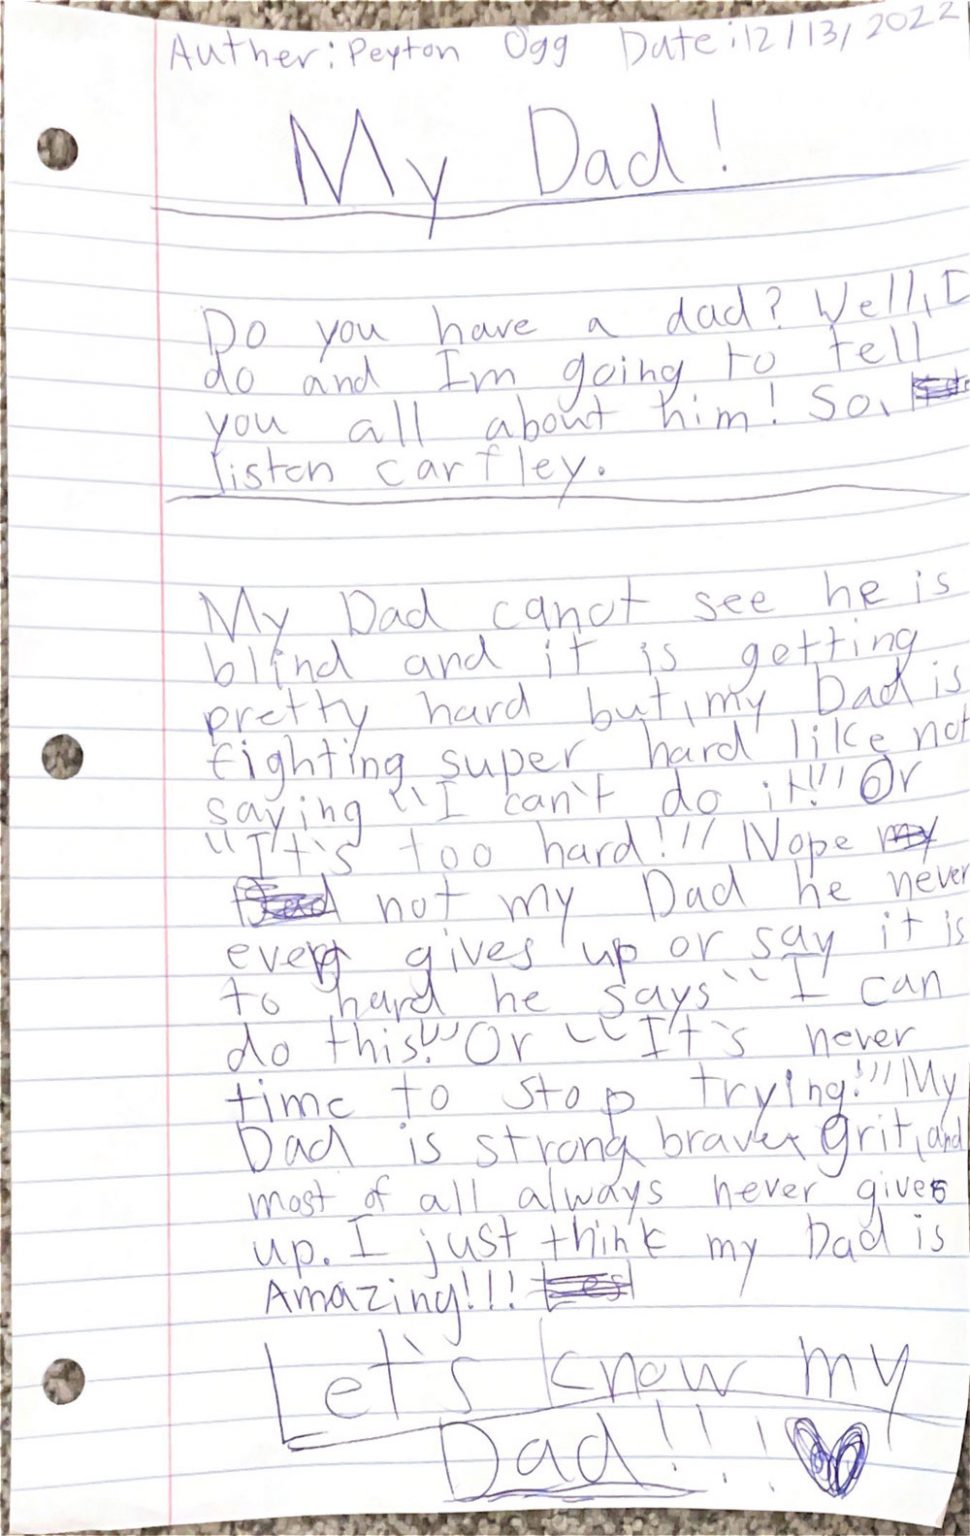 Auther: Peyton Ogg Date: 12/13/2022
My Dad!
Do you have a dad? Well, I
do and Im going to tell
you all about him! So,
listen carfley.
My Dad canot see he is
blind and it is getting
pretty hard but, my Dad is
fighting super hard like not
saying "I can't do it!" Or
"It's too hard!" Nope
not my Dad he never
ever gives up or say it is
to hard he says "I can
do this!" Or "It's never
time to stop trying!" My
Dad is strong, brave, grit, and
most of all always never gives
up. I just think my Dad is
Amazing!!!
Let's know my
Dad!!!